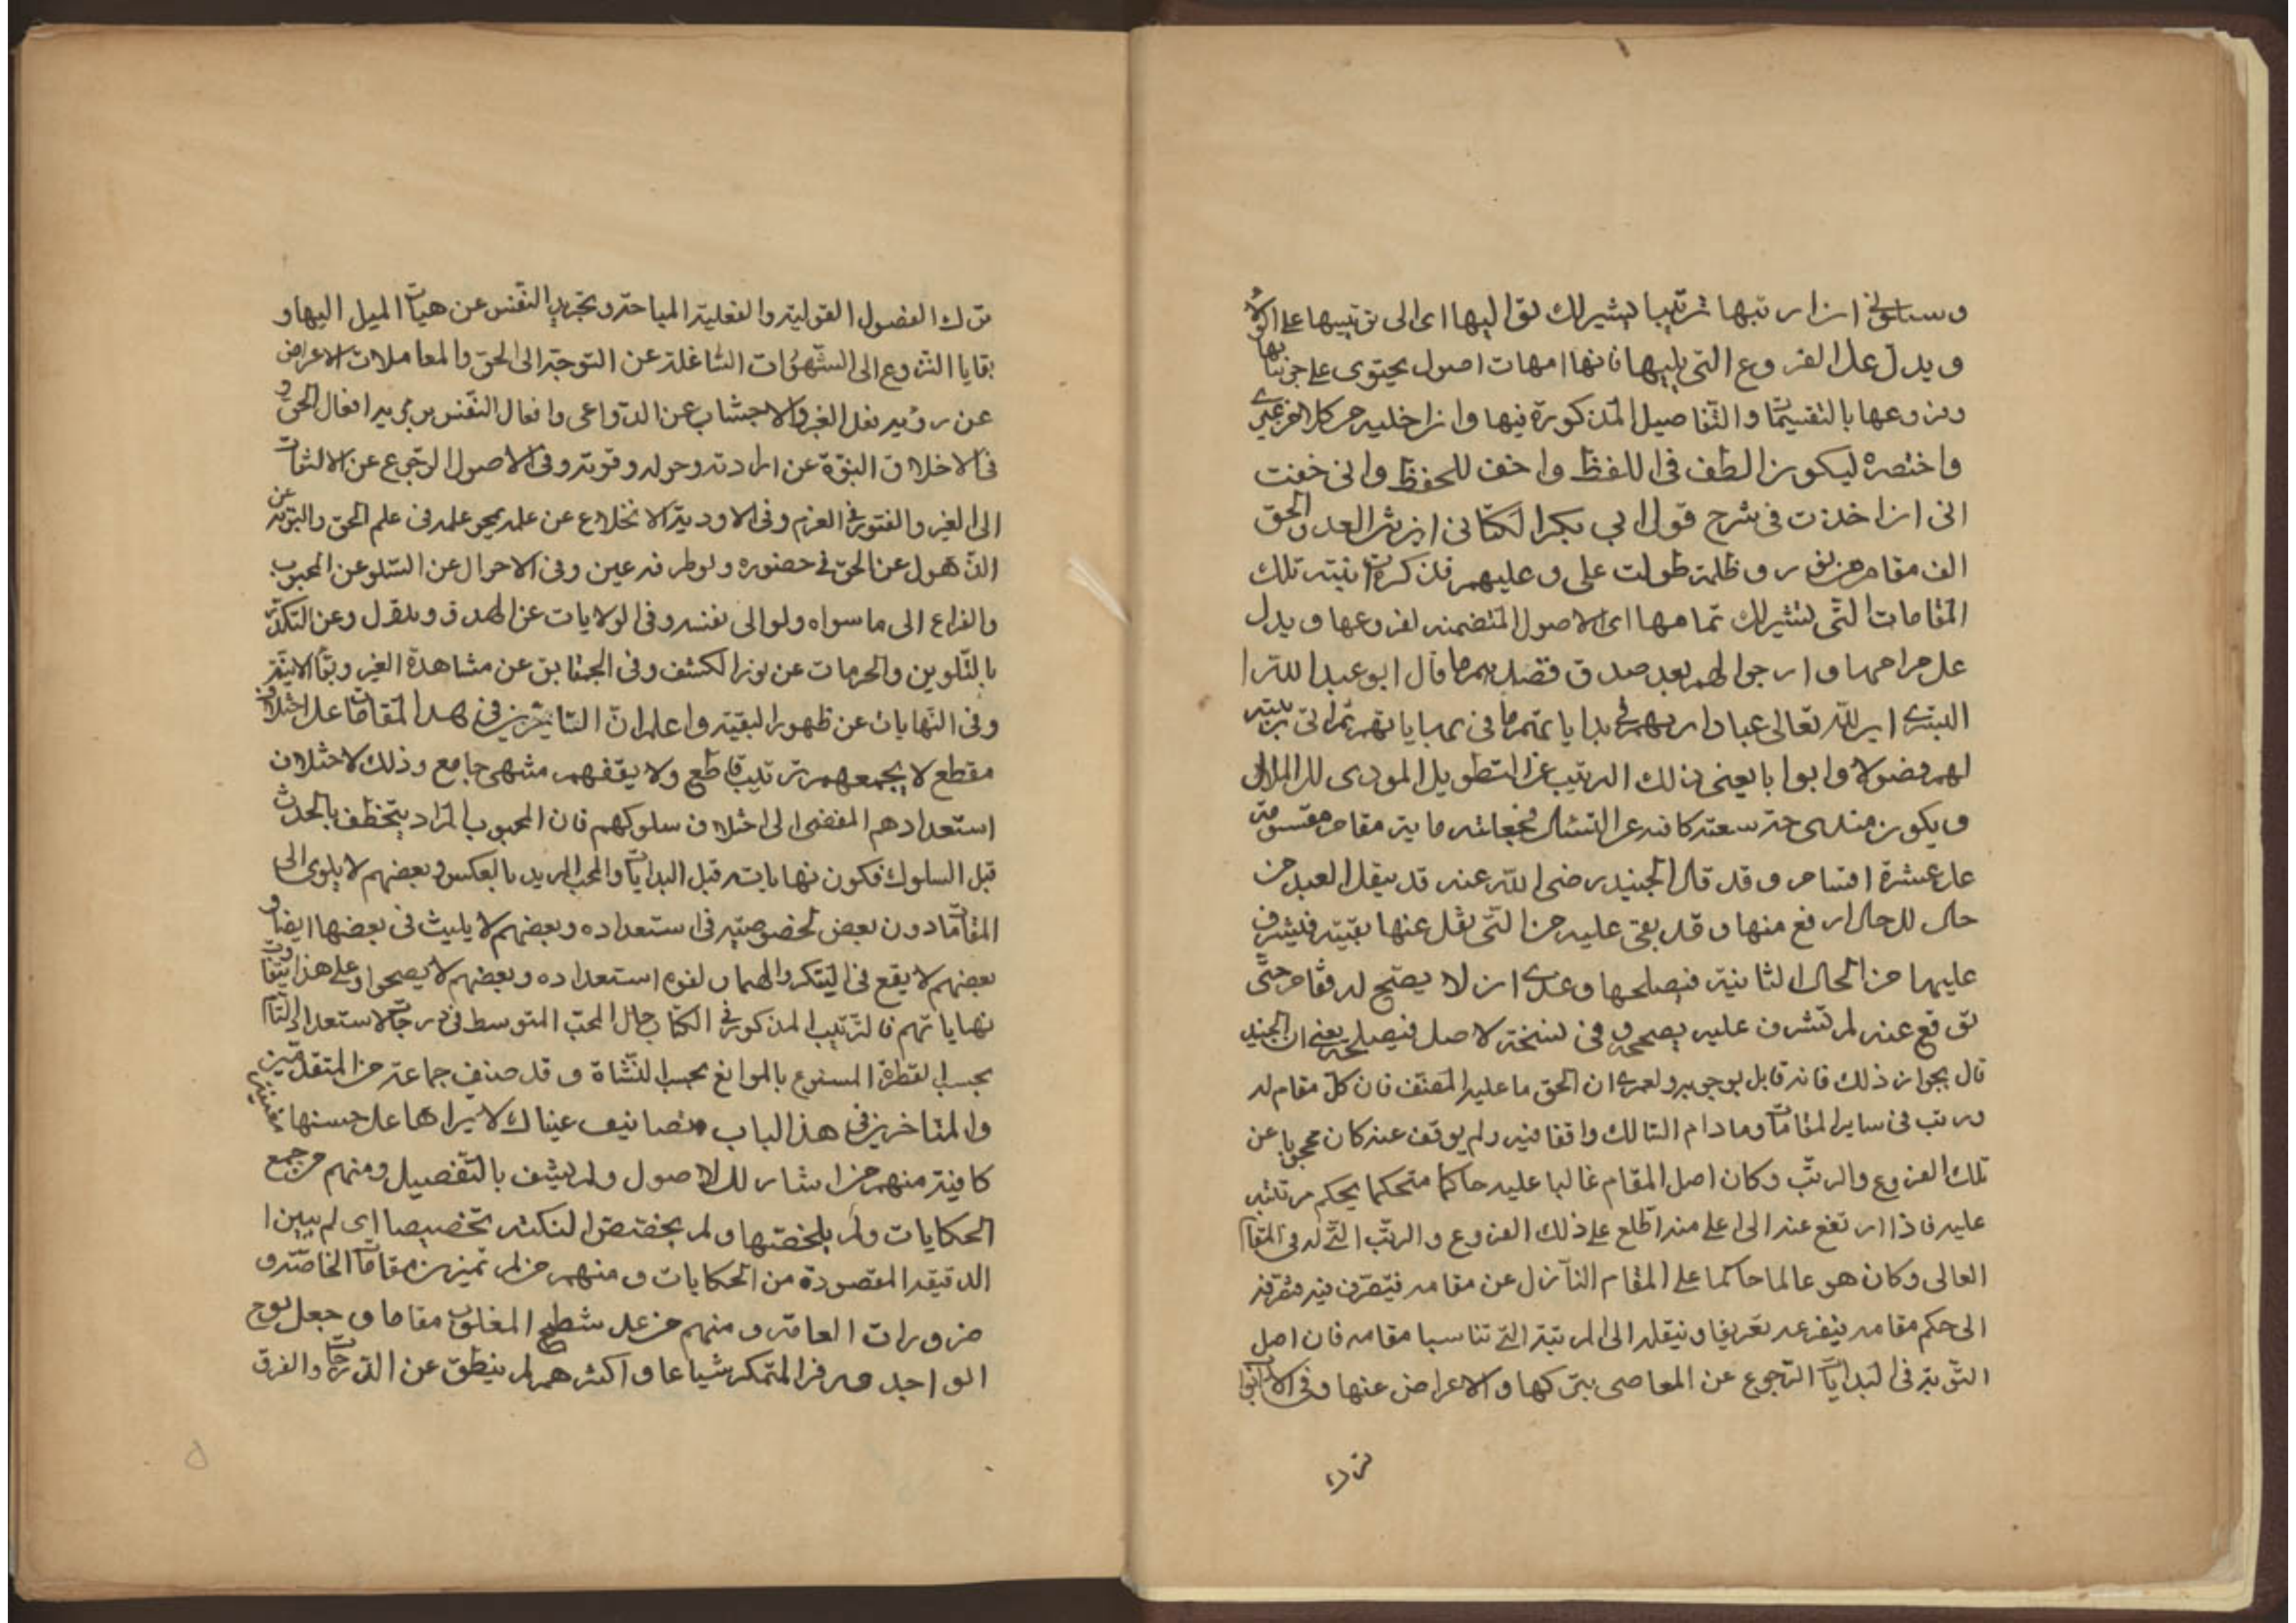 وسالوني ان ارتبها ترتيبا يشير الى تواليها اى الى ترتيبها على الولاء
ويدل على الفروع التى يليها فانها امهات اصول يحتوى على جزئياتها
وفروعها بالتقسيمات والتفاصيل المذكورة فيها وان اخليه من كلام غيرى
واختصره ليكون الطف فى اللفظ واخف للحفظ وانى خفت
انى ان اخذت فى شرح قول ابى بكر الكتانى ان بين العبد والحق
الف مقام من نور وظلمة طولت على وعليهم فذكرت ابنية تلك
المقامات التى تشير الى تمامها اى الاصول المتضمنه لفروعها ويدل
على مرامها وارجوا لهم بعد صدق قصدهم ما قال ابو عبد الله
البسرى ان لله تعالى عبادا يريهم فى بداياتهم ما فى نهاياتهم ثم انى رتبته
لهم فصولا وابوابا يغنى ذلك الترتيب عن التطويل المودى الى الملال
ويكون مندوحة سعة كافية عن التسال فجعلته ماية مقام مقسومة
على عشرة اقسام وقد قال الجنيد رضى الله عنه قد ينقل العبد من
حال الى حال ارفع منها وقد بقى عليه من التى نقل عنها بقية فيشرف
عليها من الحال الثانية فيصلحها وعندى ان لا يصح له مقام حتى
يرتفع عنه ثم يشرف عليه يصححه وفى نسخة الاصل فيصلحه يعنى ان الجنيد
قال بجواز ذلك فانه قابل بوجوبه ولعمرى ان الحق ما عليه المصنف فان كل مقام له
ورتب فى ساير المقامات وما دام السالك واقفا فيه ولم يوقف عنه كان محجوبا عن
تلك الفروع والرتب وكان اصل المقام غالبا عليه حاكما متحكما يحكم مرتبته
عليه فاذا ارتفع عنه الى اعلى منه اطلع على ذلك الفروع والرتب التى له فى المقام
العالى وكان هو عالما حاكما على المقام النازل عن مقامه فيتصرف فيه متصرفه
الى حكم مقامه يفرعه تعريفا وينقله الى المرتبة التى تناسبا مقامه فان اصل
التوبة فى البدايات الرجوع عن المعاصى بتركها والاعراض عنها وفى الابواب
ترك
ترك الفضول القولية والفعلية المباحة وتجريد النفس عن هيات الميل اليها و
بقايا النزوع الى الشهوات الشاغلة عن التوجه الى الحق والمعاملات الاعراض
عن روية فعل الغير والاجتناب عن الدواعى وافعال النفس بروية افعال الحق و
فى الاخلاق التوبة عن ارادته وحوله وقوته وفى الاصول الرجوع عن الالتفات
الى الغير والفتور فى العزم وفى الاودية الانخلاع عن علمه بمحو علمه فى علم الحق والتوبة عن
الذهول عن الحق فى حضوره ولو طرفة عين وفى الاحوال عن السلو عن المحبوب
والفراغ الى ما سواه ولو الى نفسه وفى الولايات عن الهدو وبلا وعن التكدر
بالتلوين والحرمات عن نور الكشف وفى الحقايق عن مشاهدة الغير وبقاء الانية
وفى النهايات عن ظهور البقية واعلم ان السايرين فى هذا المقامات على اختلاف
مقطع لا يجمعهم ترتيب قاطع ولا يقفهم منتهى جامع وذلك لاختلاف
استعدادهم المفضى الى اختلاف سلوكهم فان المحبوب المراد يتخطف بالجذب
قبل السلوك فكون نهاياته قبل البدايات والمحب المريد بالعكس وبعضهم لا يلوى الى
المقامات دون بعض لخصوصية فى استعداده وبعضهم لا يلبث فى بعضها ايضا و
بعضهم لا يقع فى السكر والهيمان لقوه استعداده وبعضهم لا يصحوا وعلى هذا يتفاوت
نهاياتهم فالترتيب المذكور فى الكتاب حال المحب المتوسط فى درجات الاستعداد التام
بحسب الفطرة الممنوع بالموانع بحسب النشاة وقد صنف جماعة من المتقدمين
والمتاخرين فى هذا الباب تصانيف عيناك لا يراها على حسنها مغنية
كافية منهم من اشار الى الاصول ولم يشف بالتفصيل ومنهم من جمع
الحكايات ولم يلخصها ولم يخصص النكتة تخصيصا اى لم يبين
الدقيقه المقصودة من الحكايات ومنهم من لم تميز بين مقامات الخاصة و
ضرورات العامة ومنهم من عد شطح المغلوب مقاما وجعل بوح
الواجد ورمز المتمكن شيا عاما واكثرهم لم ينطق عن الدرجات والفرق